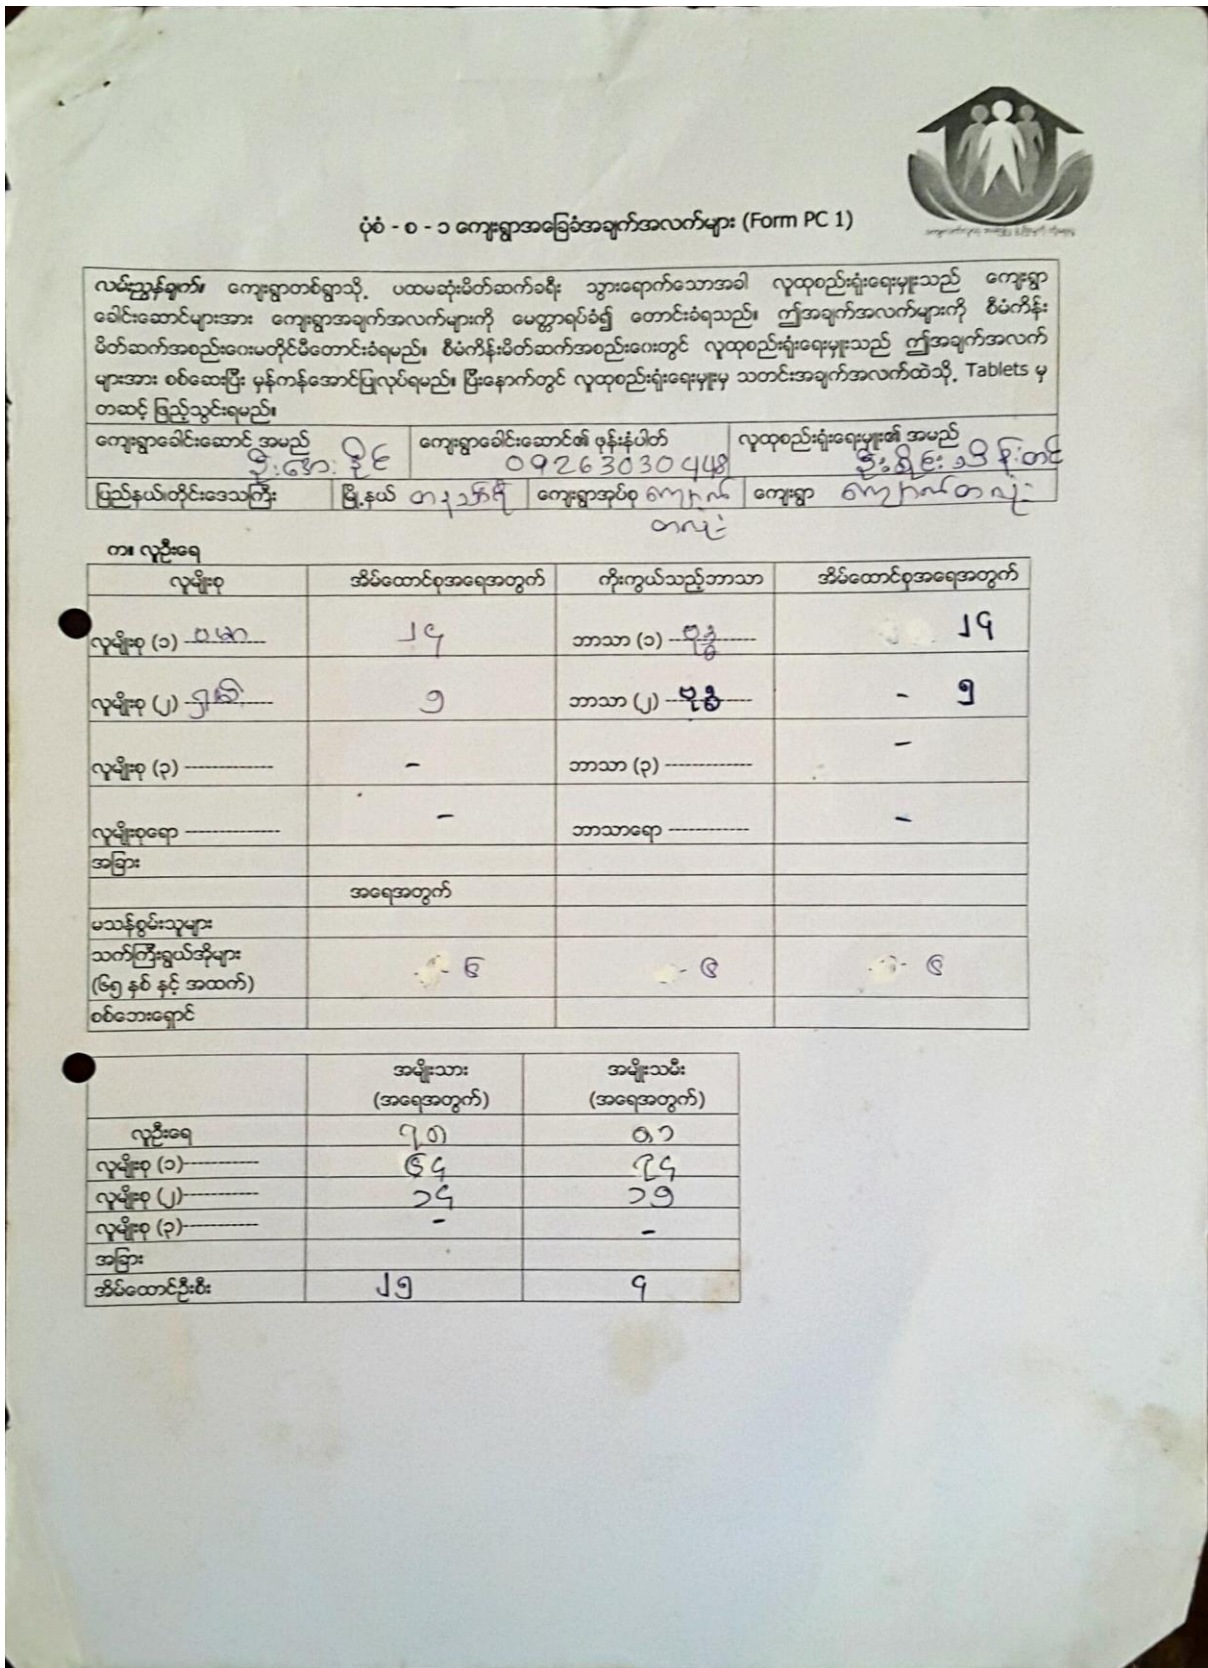 ပုံစံ - စ - ၁ ကျေးရွာအခြေခံအချက်အလက်များ (Form PC 1)
လမ်းညွှန်ချက်။ ကျေးရွာတစ်ရွာသို့ ပထမဆုံးမိတ်ဆက်ခရီး သွားရောက်သောအခါ လူထုစည်းရုံးရေးမှူးသည် ကျေးရွာ
ခေါင်းဆောင်များအား ကျေးရွာအချက်အလက်များကို မေတ္တာရပ်ခံ၍ တောင်းခံရသည်။ ဤအချက်အလက်များကို စီမံကိန်း
မိတ်ဆက်အစည်းဝေးမတိုင်မီတောင်းခံရမည်။ စီမံကိန်းမိတ်ဆက်အစည်းဝေးတွင် လူထုစည်းရုံးရေးမှူးသည် ဤအချက်အလက်
များအား စစ်ဆေးပြီး မှန်ကန်အောင်ပြုလုပ်ရမည်။ ပြီးနောက်တွင် လူထုစည်းရုံးရေးမှူးမှ သတင်းအချက်အလက်ထဲသို့ Tablets မှ
တဆင့် ဖြည့်သွင်းရမည်။
ကျေးရွာခေါင်းဆောင် အမည် ကျေးရွာခေါင်းဆောင်၏ ဖုန်းနံပါတ် လူထုစည်းရုံးရေးမှူး၏ အမည်
ဦးအေးနိုင် 09263030448
ပြည်နယ်၊တိုင်းဒေသကြီး မြို့နယ် တနင်္သာရီ ကျေးရွာအုပ်စု ကျောက် ကျေးရွာ ကျောက်တလုံး
တလုံး
က။ လူဦးရေ
လူမျိုးစု အိမ်ထောင်စုအရေအတွက် ကိုးကွယ်သည့်ဘာသာ အိမ်ထောင်စုအရေအတွက်
လူမျိုးစု (၁) ဗမာ ၂၄ ဘာသာ (၁) ဗုဒ္ဓ ၂၄
လူမျိုးစု (၂) ၅ ဘာသာ (၂) ဗုဒ္ဓ - ၅
လူမျိုးစု (၃) ------------ - ဘာသာ (၃) ------------ -
လူမျိုးစုရော ------------ - ဘာသာရော ------------ -
အခြား
အရေအတွက်
မသန်စွမ်းသူများ
သက်ကြီးရွယ်အိုများ
(၆၅ နှစ် နှင့် အထက်) - ၆ - ၆ - ၆
စစ်ဘေးရှောင်
အမျိုးသား အမျိုးသမီး
(အရေအတွက်) (အရေအတွက်)
လူဦးရေ ၇၈
လူမျိုးစု (၁)------------ ၆၄ ၇၄
လူမျိုးစု (၂)------------ ၁၄ ၁၅
လူမျိုးစု (၃)------------ - -
အခြား
အိမ်ထောင်ဦးစီး ၂၅ ၄